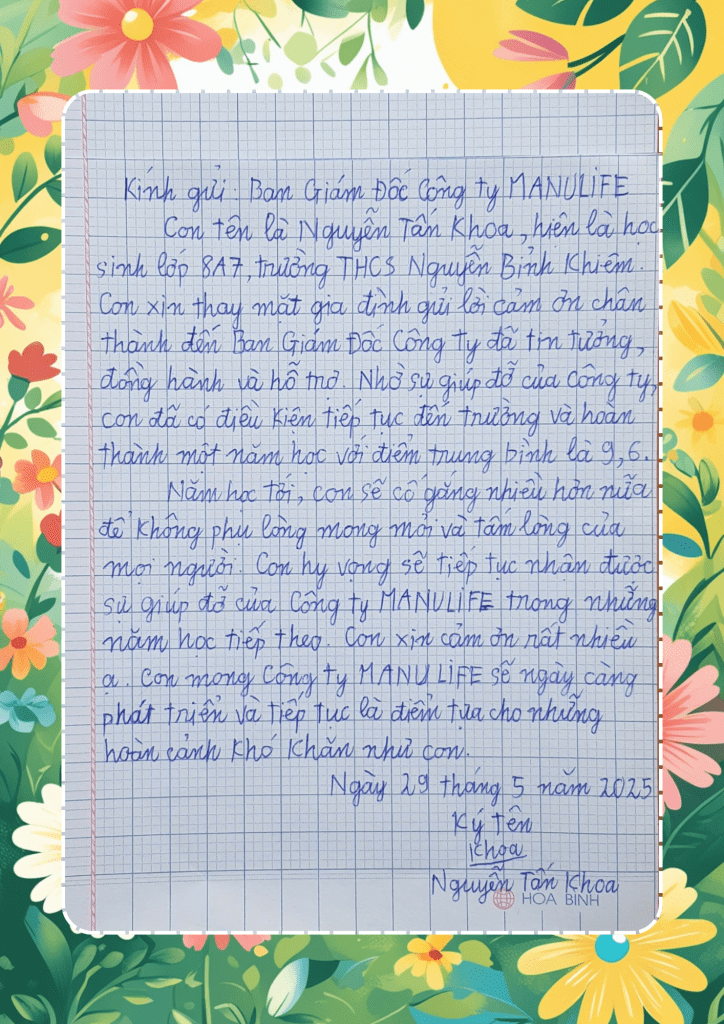 Kính gửi: Ban Giám Đốc Công ty MANULIFE
Con tên là Nguyễn Tấn Khoa, hiện là học
sinh lớp 8A7, trường THCS Nguyễn Bỉnh Khiêm.
Con xin thay mặt gia đình gửi lời cảm ơn chân
thành đến Ban Giám Đốc Công ty đã tin tưởng,
đồng hành và hỗ trợ. Nhờ sự giúp đỡ của Công ty,
con đã có điều kiện tiếp tục đến trường và hoàn
thành một năm học với điểm trung bình là 9,6.
Năm học tới, con sẽ cố gắng nhiều hơn nữa
để không phụ lòng mong mỏi và tấm lòng của
mọi người. Con hy vọng sẽ tiếp tục nhận được
sự giúp đỡ của Công ty MANULIFE trong những
năm học tiếp theo. Con xin cảm ơn rất nhiều
ạ. Con mong Công ty MANULIFE sẽ ngày càng
phát triển và tiếp tục là điểm tựa cho những
hoàn cảnh khó khăn như con.
Ngày 29 tháng 5 năm 2025
Ký tên
Khoa
Nguyễn Tấn Khoa
HOA BINH